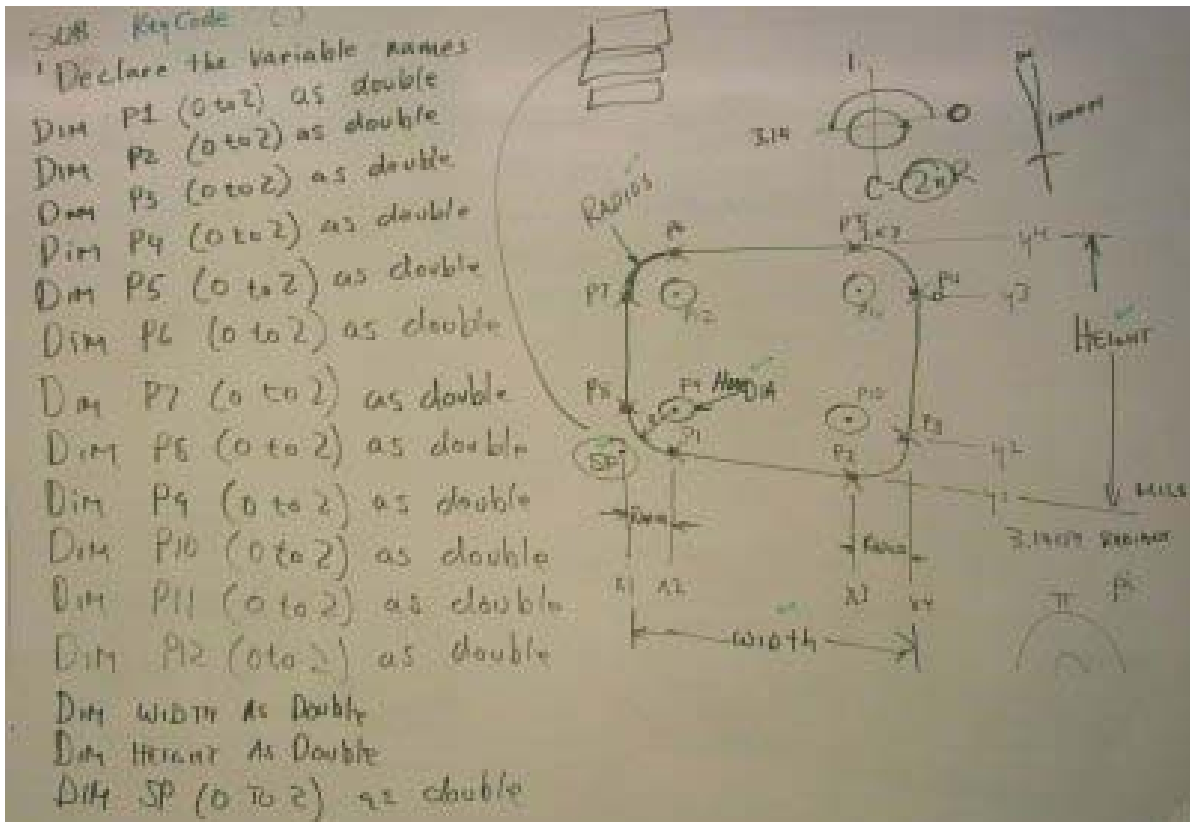 SUB KeyCode ()
' Declare the Variable names
Dim P1 (0 to 2) as double
Dim P2 (0 to 2) as double
Dim P3 (0 to 2) as double
Dim P4 (0 to 2) as double
Dim P5 (0 to 2) as double
Dim P6 (0 to 2) as double
Dim P7 (0 to 2) as double
Dim P8 (0 to 2) as double
Dim P9 (0 to 2) as double
Dim P10 (0 to 2) as double
Dim P11 (0 to 2) as double
Dim P12 (0 to 2) as double
Dim WIDTH As Double
Dim HEIGHT As Double
Dim SP (0 To 2) as double
3.14
0
C-2πR
RADIOS
P5
y4
P7
P12
P4
y3
HEIGHT
P8
P9
DIA
P10
P3
SP
P1
P2
y2
y1
3.14159 RADIANT
X1
X2
X3
X4
π
Pi
WIDTH